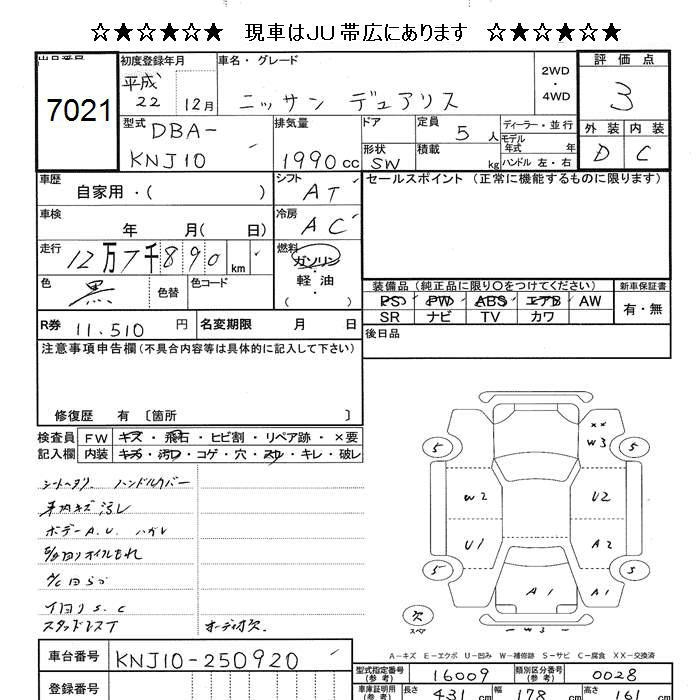 ☆★☆★☆★ 現車はJU帯広にあります ☆★☆★☆★
出品番号
7021
初度登録年月
平成
22 12月
車名・グレード
ニッサン デュアリス
2WD
・
4WD
評価点
3
外装 内装
D C
型式
DBA-
KNJ10
排気量
1990 cc
ドア
形状
SW
定員
5 人
積載
kg
ディーラー・並行
モデル
年式 年
ハンドル 左・右
車歴
自家用・( )
シフト
AT
セールスポイント (正常に機能するものに限ります)
車検
年 月( 日)
冷房
AC
走行
12万7千890 km
燃料
ガソリン
・
軽油
・
( )
色
黒
色替
色コード
装備品 (純正品に限り○をつけてください)
PS PW ABS エアB AW
SR ナビ TV カワ
新車保証書
有・無
R券 11,510 円
名変期限 月 日
後日品
注意事項申告欄(不具合内容等は具体的に記入して下さい)
修復歴 有 〔箇所 〕
検査員
記入欄
FW キズ・飛石・ヒビ割・リペア跡・×要
内装 キズ・汚レ・コゲ・穴・スレ・キレ・破レ
シートヘタリ ハンドルカバー
車内キズ汚レ
ボデーA.U. ハガレ
スタッドレスT
オーディオ欠
5 5 5 5
××
W3
W2 U2
U1 A2
A1 A1
W3
欠
スペア
A-キズ E-エクボ U-凹み W-補修跡 S-サビ C-腐食 XX-交換済
車台番号
KNJ10-250920
登録番号
型式指定番号
(参考)
16009
類別区分番号
(参考)
0028
車庫証明用
(参考)
長さ
431 cm
幅
178 cm
高さ
161 cm